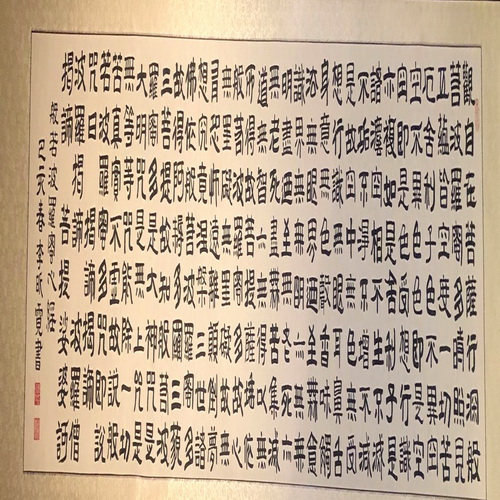 觀自在菩薩行深般
若波羅蜜多時照見
五蘊皆空度一切苦
厄舍利子色不異空
空不異色色即是空
空即是色受想行識
亦復如是舍利子是
諸法空相不生不滅
不垢不淨不增不減
是故空中無色無受
想行識無眼耳鼻舌
身意無色聲香味觸
法無眼界乃至無意
識界無無明亦無無
明盡乃至無老死亦
無老死盡無苦集滅
道無智亦無得以無
所得故菩提薩埵依
般若波羅蜜多故心
無罣礙無罣礙故無
有恐怖遠離顛倒夢
想究竟涅槃三世諸
佛依般若波羅蜜多
故得阿耨多羅三藐
三菩提故知般若波
羅蜜多是大神咒是
大明咒是無上咒是
無等等咒能除一切
苦真實不虛故說般
若波羅蜜多咒即說
咒曰揭諦揭諦
波羅揭諦波羅僧
揭諦菩提娑婆訶
般若波羅蜜心經
己亥春李書